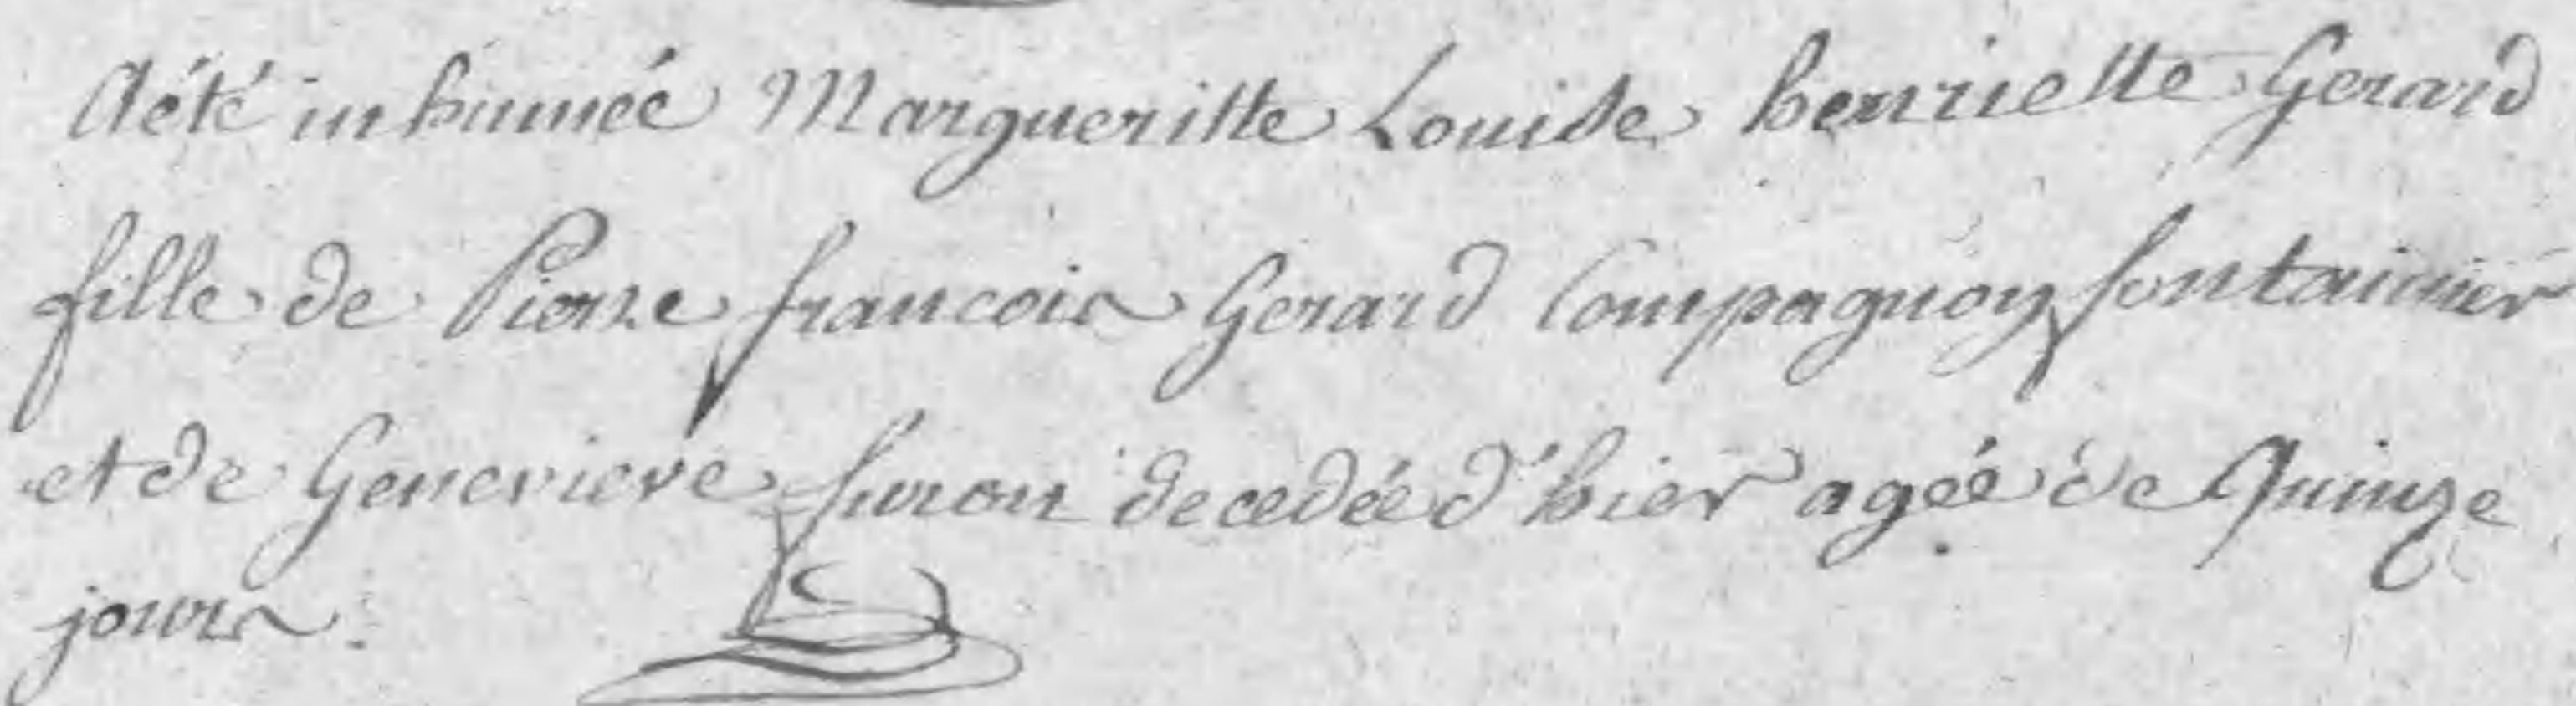 A été inhumée Margueritte Louise henriette Gerard
fille de Pierre francois Gerard Compagnon fontainier
et de Genevieve furon decedée d'hier agée de Quinze
jours.